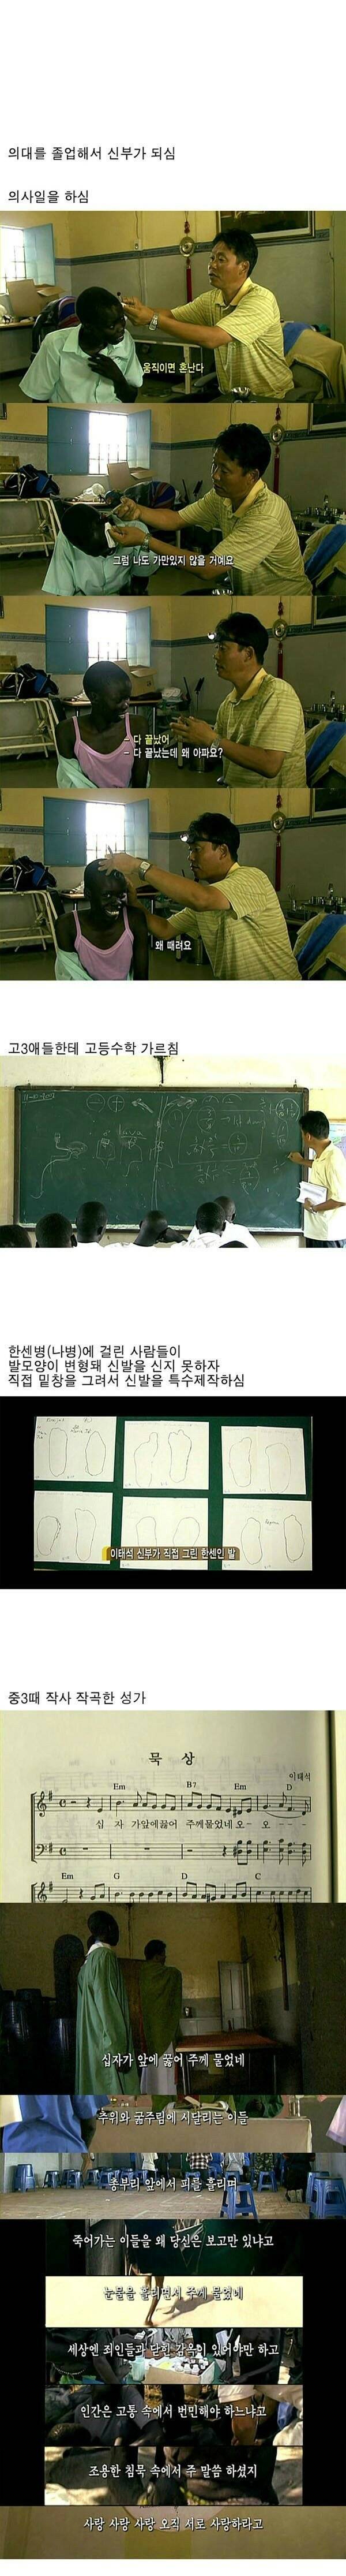 의대를 졸업해서 신부가 되심
의사일을 하심
움직이면 혼난다
그럼 나도 가만있지 않을 거예요
- 다 끝났어
- 다 끝났는데 왜 아파요?
왜 때려요
고3애들한테 고등수학 가르침
한센병(나병)에 걸린 사람들이
발모양이 변형돼 신발을 신지 못하자
직접 밑창을 그려서 신발을 특수제작하심
이태석 신부가 직접 그린 한센인 발
중3때 작사 작곡한 성가
묵 상
이태석
Em B7 Em D
십 자 가앞에꿇어 주께물었네 오 - 오 - - -
Em G D C
십자가 앞에 꿇어 주께 물었네
추위와 굶주림에 시달리는 이들
총부리 앞에서 피를 흘리며
죽어가는 이들을 왜 당신은 보고만 있냐고
눈물을 흘리면서 주께 물었네
세상엔 죄인들과 닫힌 감옥이 있어야만 하고
인간은 고통 속에서 번민해야 하느냐고
조용한 침묵 속에서 주 말씀 하셨지
사랑 사랑 사랑 오직 서로 사랑하라고